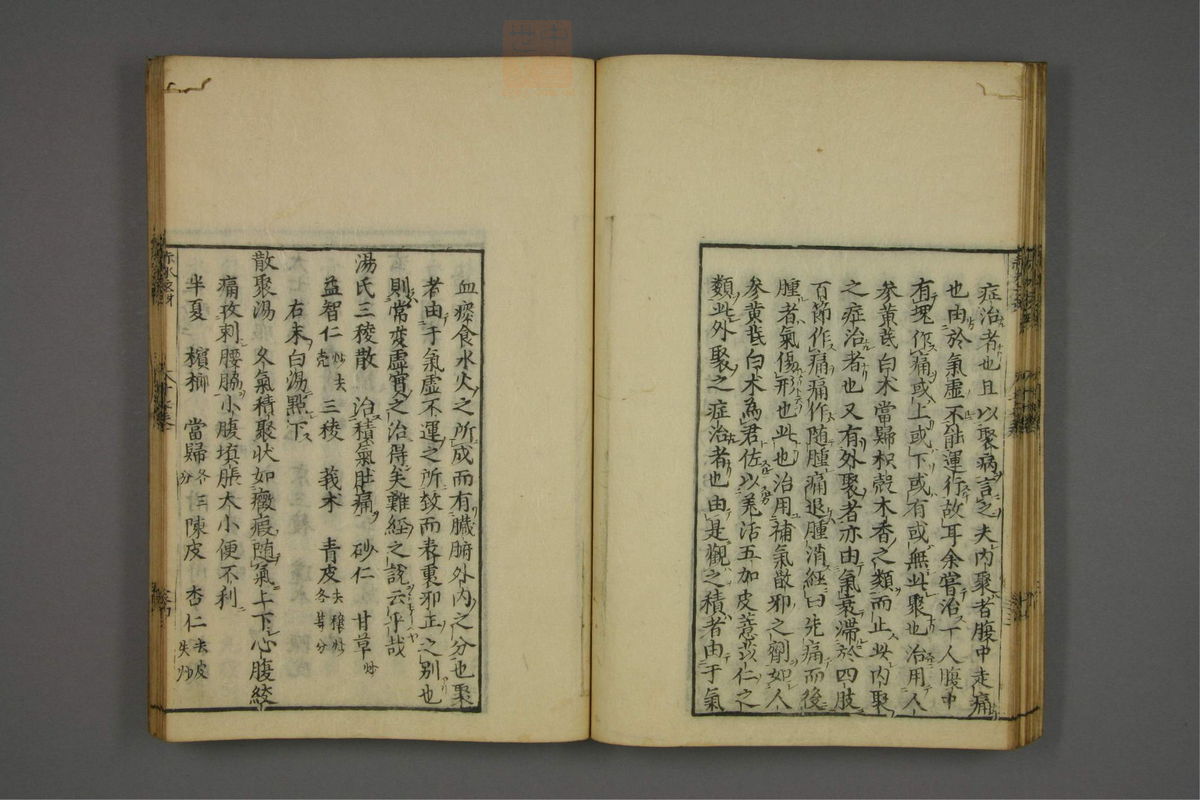 症治者也且以聚病言之夫内聚者腹中走痛
也由於氣虚不能運行故耳余嘗治一人腹中
有塊作痛或上或下或有或無此聚也治用人
參黄芪白术當歸枳殻木香之類而止此内聚
之症治者也又有外聚者亦由氣衰滯於四肢
百節作痛痛作随腫痛退腫消經曰先痛而後
腫者氣傷形也此也治用補氣散邪之劑如人
參黄芪白术為君佐以羌活五加皮薏苡仁之
類此外聚之症治者也由是觀之積者由于氣
血痰食水火之所成而有臓腑外内之分也聚
者由于氣虚不運之所致而表裏邪正之别也
則常変虚實之治得矣難經之説云乎哉
湯氏三稜散　治積氣肚痛　砂仁　甘草炒
益智仁炒去殻　三稜　莪术　青皮去穰炒各等分
右末白湯點下
散聚湯　久氣積聚状如癥瘕随氣上下心腹絞
痛攻刺腰脇小腹䐜脹大小便不利
半夏　檳榔　當歸各三分　陳皮　杏仁去皮尖炒
赤水玄珠